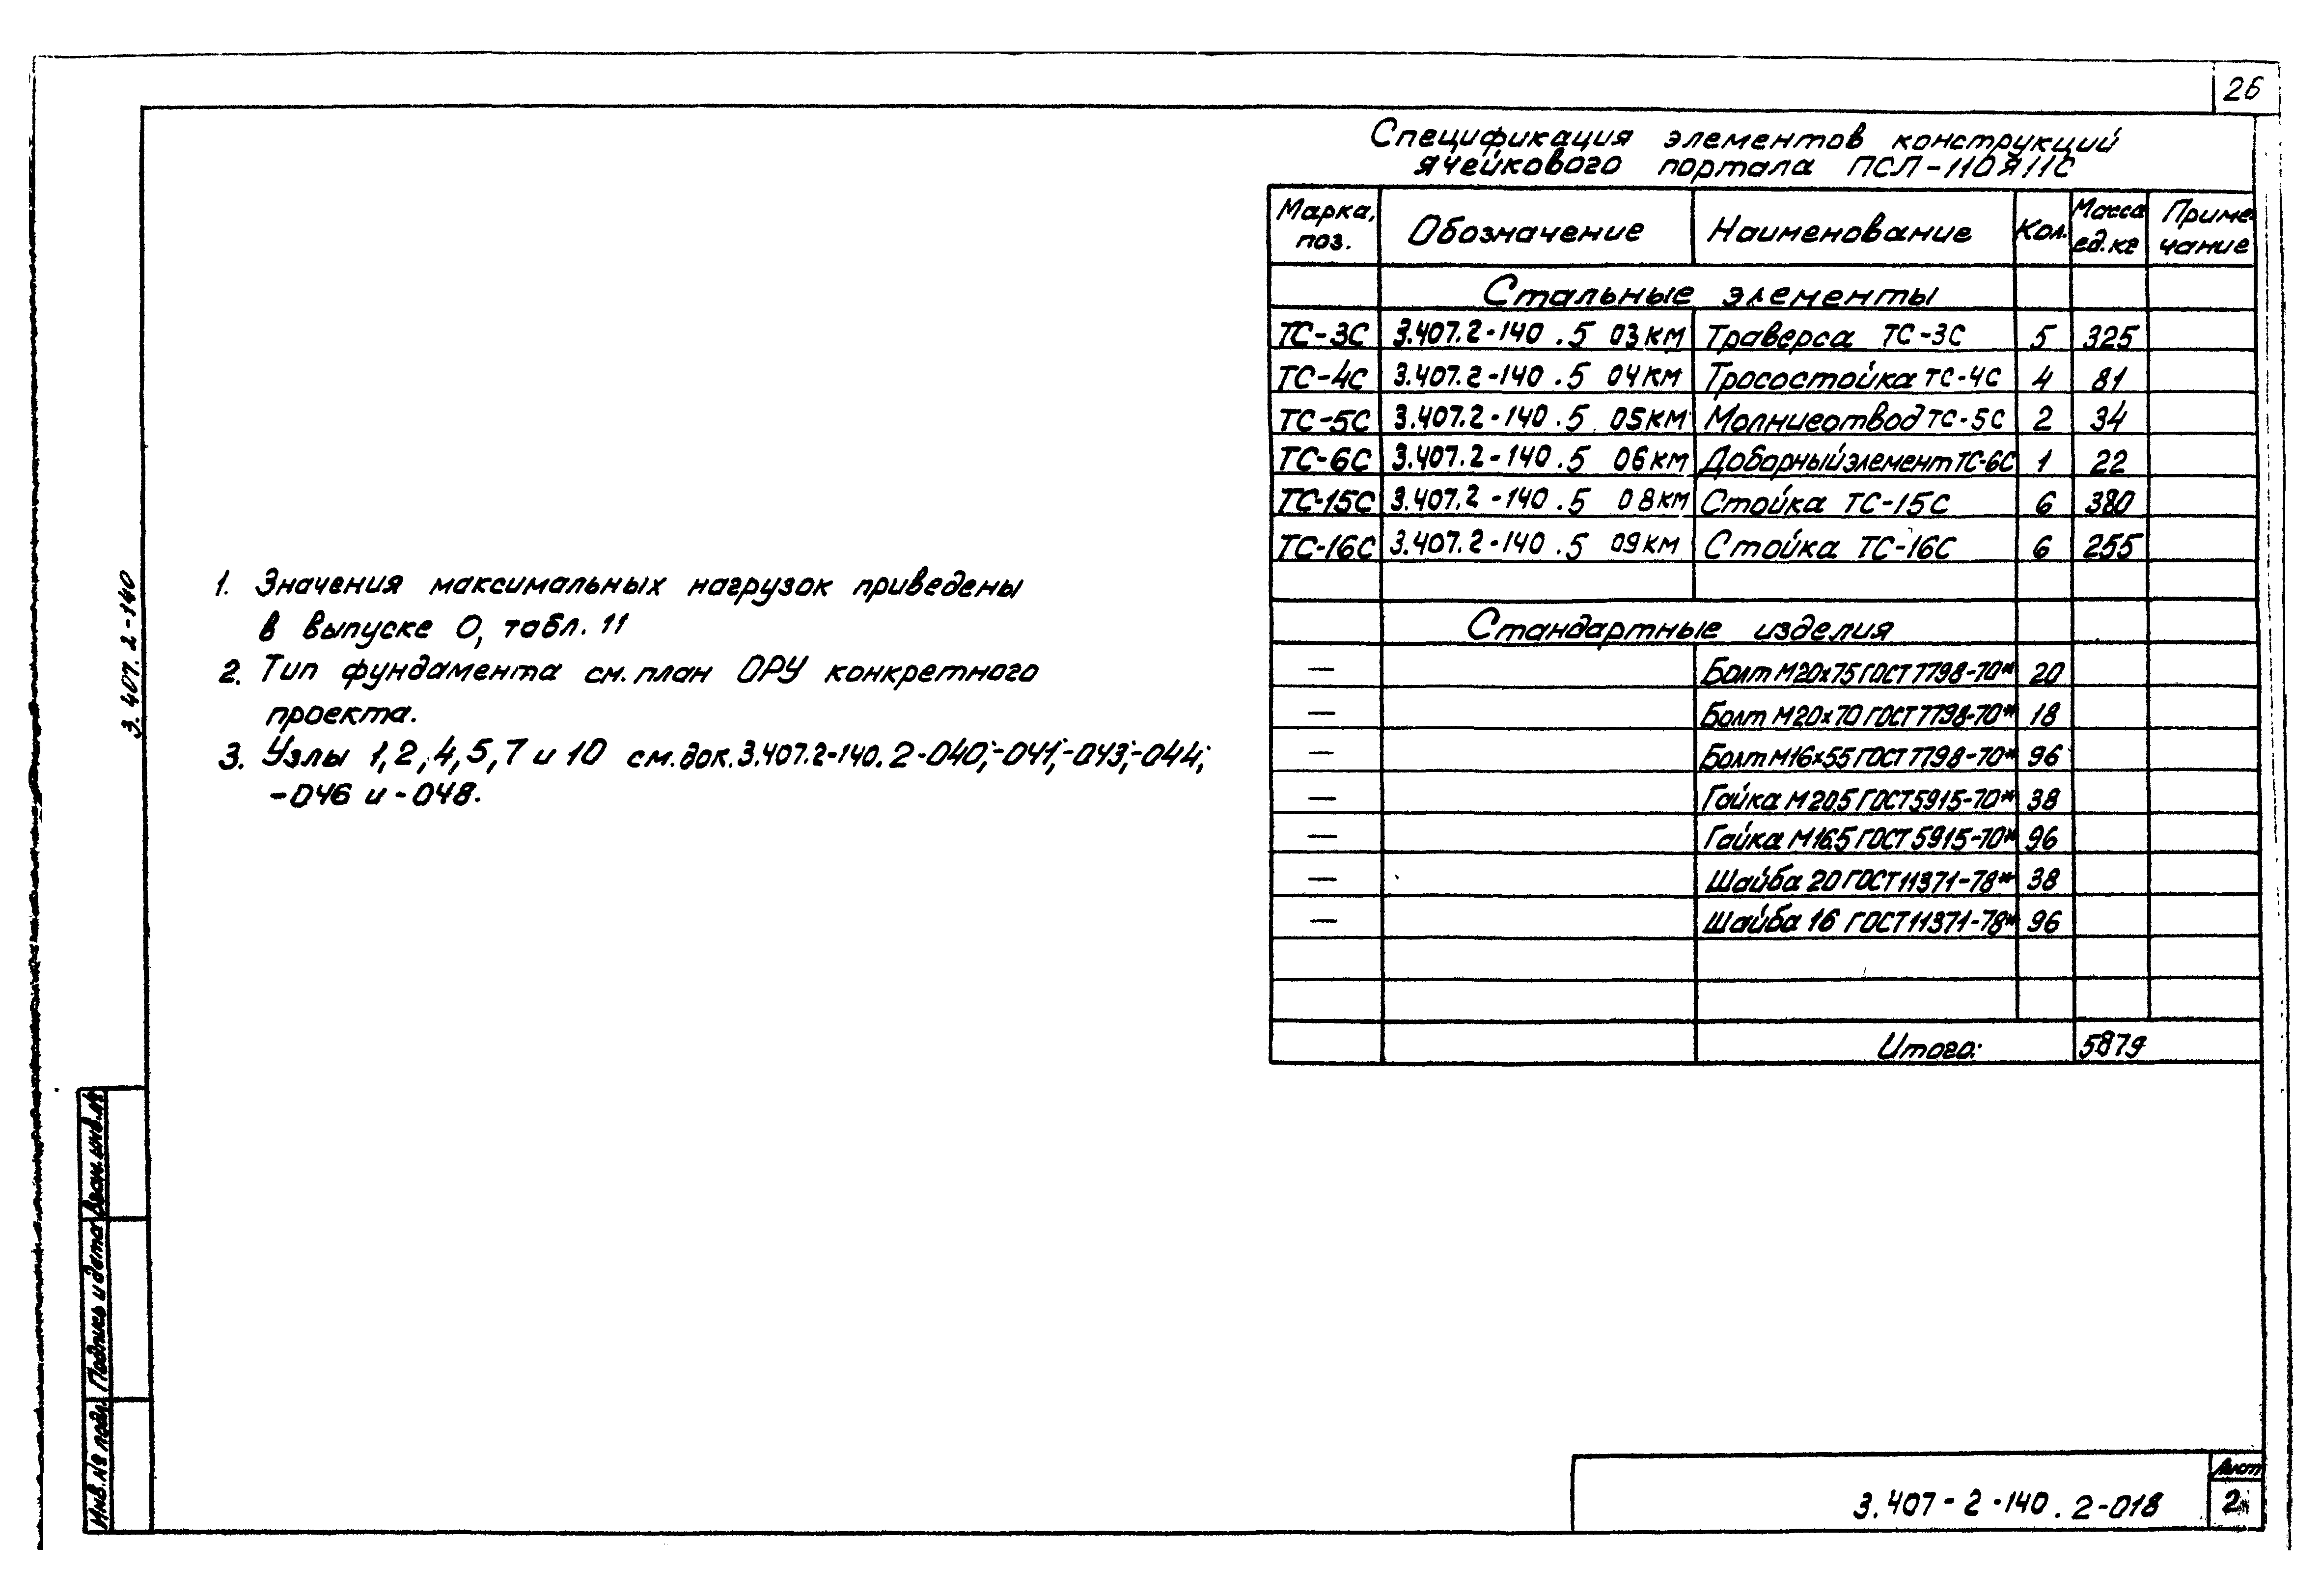 26
Спецификация элементов конструкций
ячейкового портала ПСЛ-110Я11С
Марка, поз. Обозначение Наименование Кол. Масса ед.кг Приме-чание
Стальные элементы
ТС-3С 3.407.2-140.5 03КМ Траверса ТС-3С 5 325
ТС-4С 3.407.2-140.5 04КМ Тросостойка ТС-4С 4 81
ТС-5С 3.407.2-140.5 05КМ Молниеотвод ТС-5С 2 34
ТС-6С 3.407.2-140.5 06КМ Доборный элемент ТС-6С 1 22
ТС-15С 3.407.2-140.5 08КМ Стойка ТС-15С 6 380
ТС-16С 3.407.2-140.5 09КМ Стойка ТС-16С 6 255
Стандартные изделия
— Болт М20х75 ГОСТ 7798-70* 20
— Болт М20х70 ГОСТ 7798-70* 18
— Болт М16х55 ГОСТ 7798-70* 96
— Гайка М20.5 ГОСТ 5915-70* 38
— Гайка М16.5 ГОСТ 5915-70* 96
— Шайба 20 ГОСТ 11371-78* 38
— Шайба 16 ГОСТ 11371-78* 96
Итого: 5879
1. Значения максимальных нагрузок приведены
в выпуске 0, табл. 11
2. Тип фундамента см. план ОРУ конкретного
проекта.
3. Узлы 1, 2, 4, 5, 7 и 10 см. док. 3.407.2-140.2-040; -041; -043; -044;
-046 и -048.
3.407.2-140
Взам. инв. №
Подпись и дата
Инв. № подл.
3.407-2-140.2-018
Лист
2